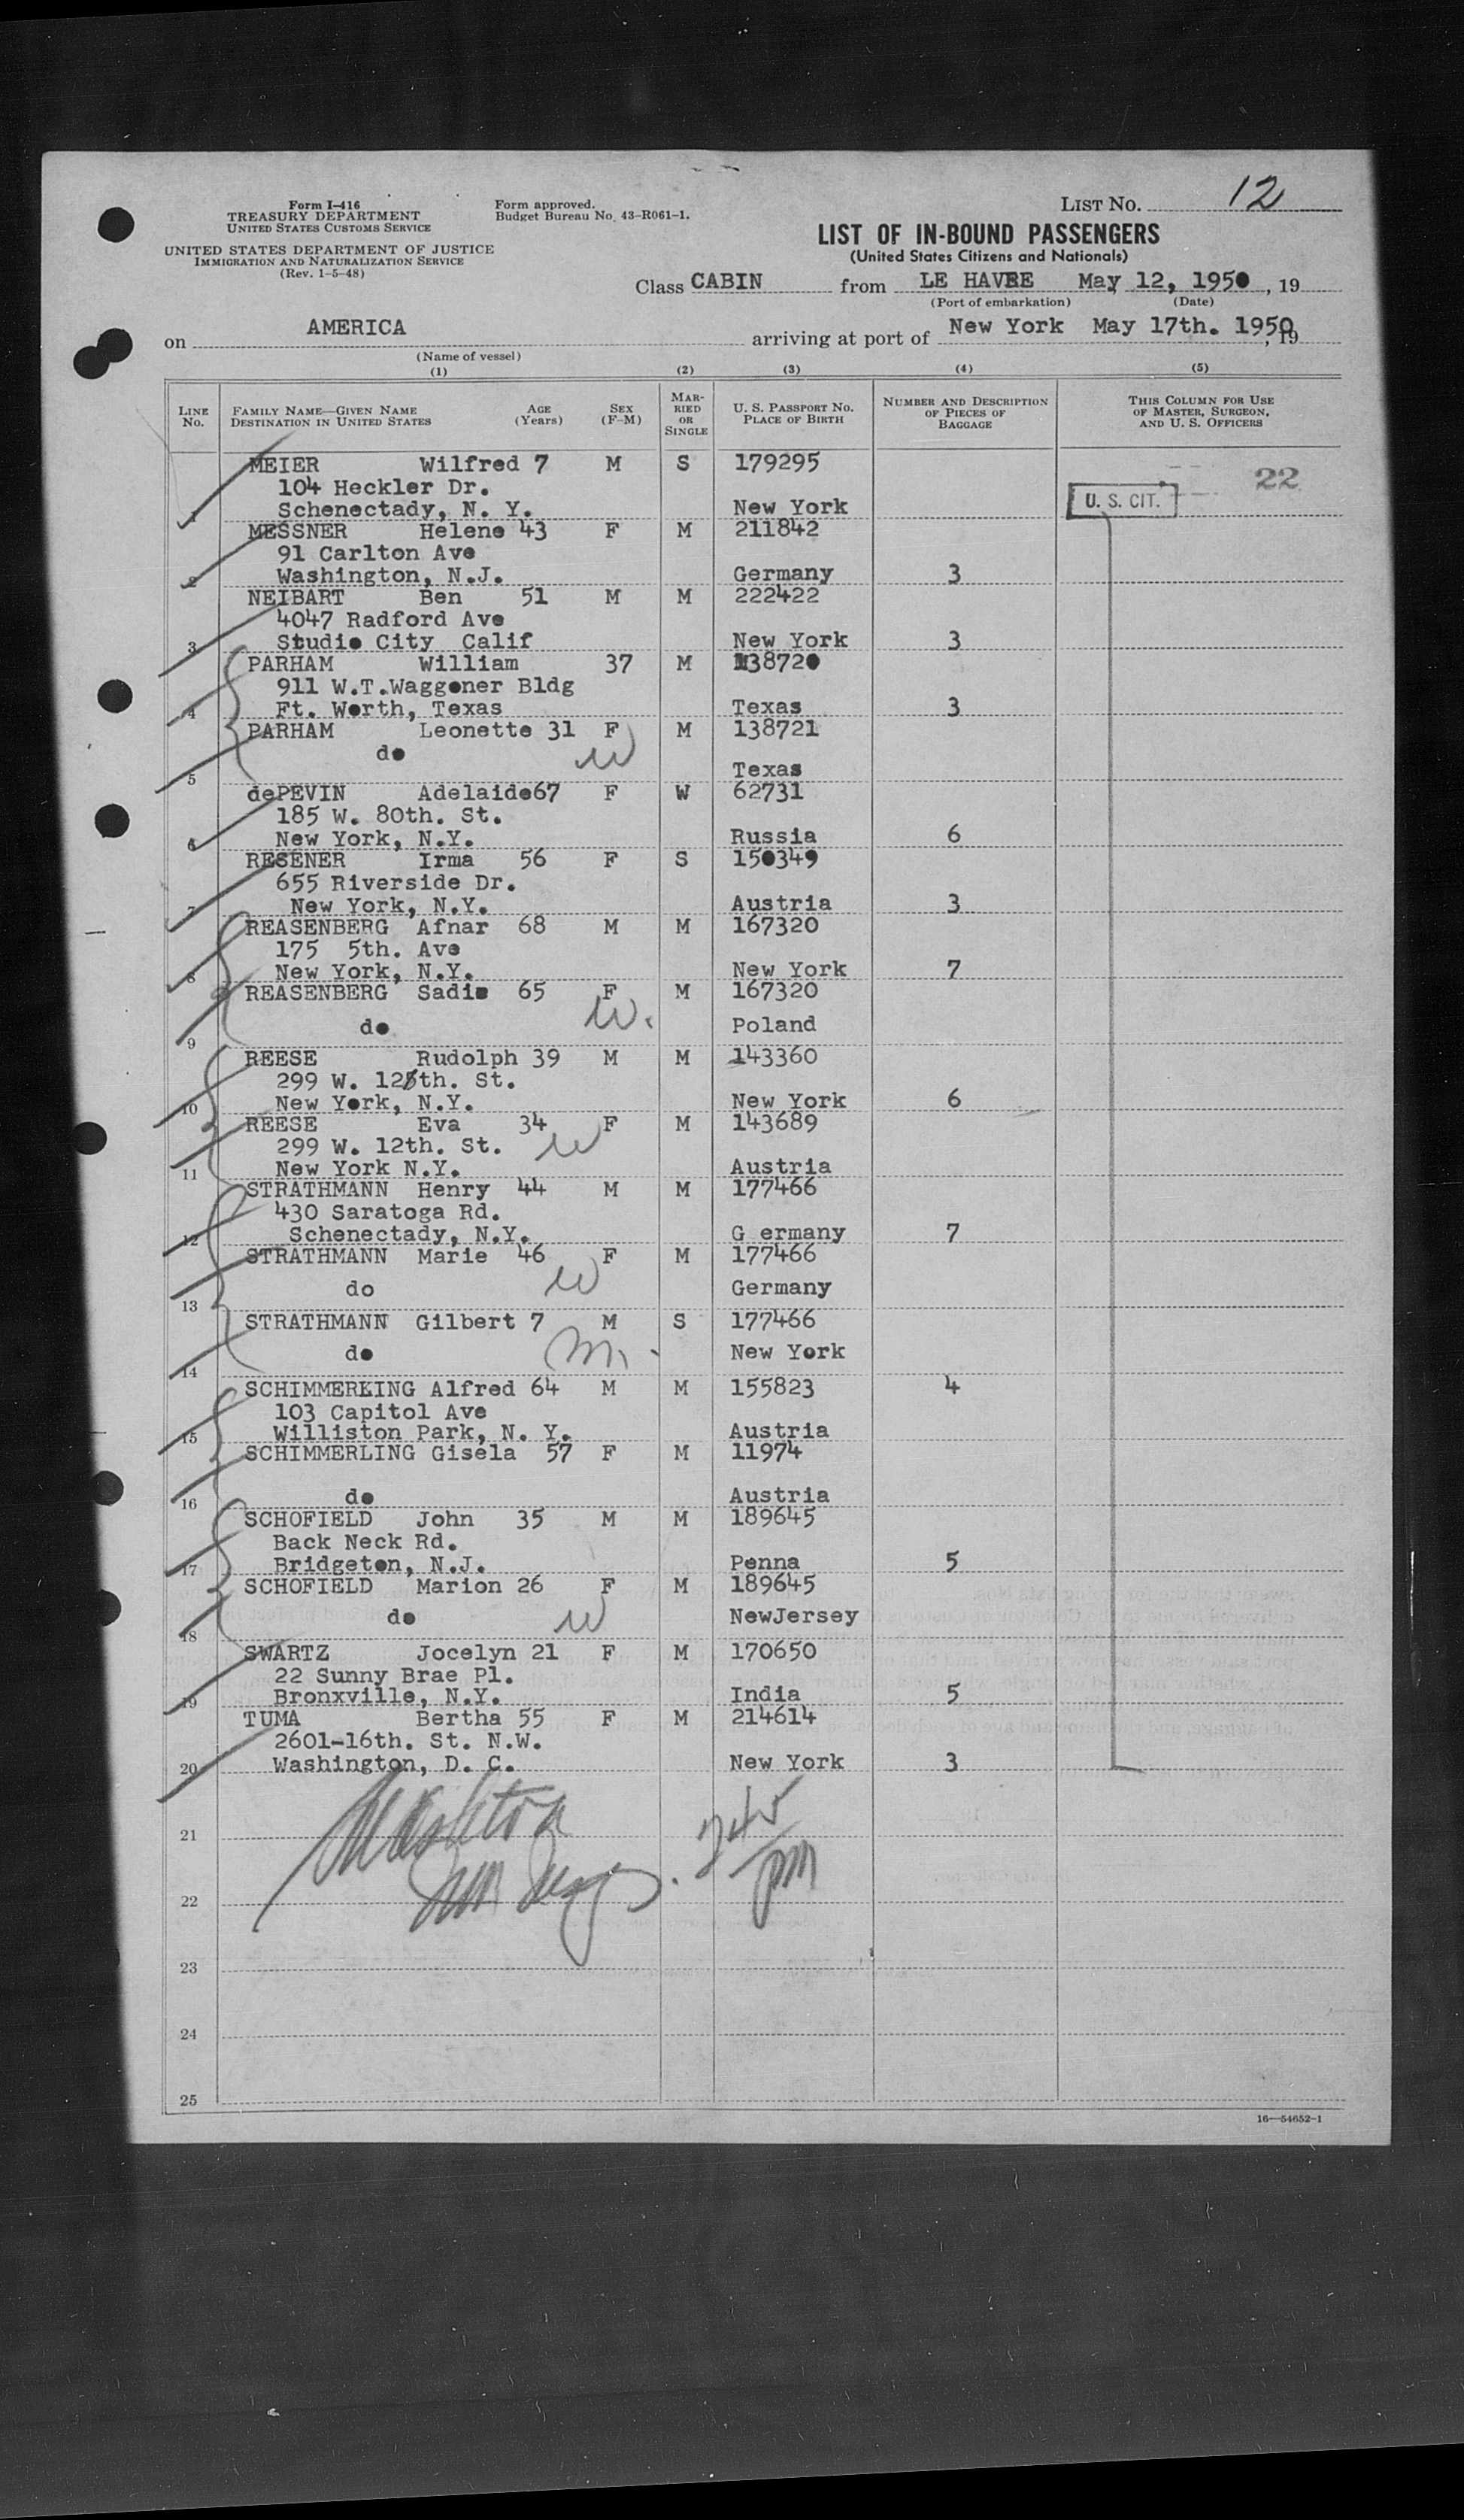 Form I-416
TREASURY DEPARTMENT
UNITED STATES CUSTOMS SERVICE
UNITED STATES DEPARTMENT OF JUSTICE
IMMIGRATION AND NATURALIZATION SERVICE
(Rev. 1-5-48)
Form approved.
Budget Bureau No. 43-R061-1.
LIST NO. 12
LIST OF IN-BOUND PASSENGERS
(United States Citizens and Nationals)
Class CABIN from LE HAVRE May 12, 1950, 19
(Port of embarkation) (Date)
on AMERICA arriving at port of New York May 17th. 1950, 19
(Name of vessel)
(1) (2) (3) (4) (5)
LINE No. FAMILY NAME—GIVEN NAME DESTINATION IN UNITED STATES AGE (Years) SEX (F-M) MARRIED OR SINGLE U. S. PASSPORT NO. PLACE OF BIRTH NUMBER AND DESCRIPTION OF PIECES OF BAGGAGE THIS COLUMN FOR USE OF MASTER, SURGEON, AND U. S. OFFICERS
MEIER Wilfred 7 M S 179295 22
104 Heckler Dr. U. S. CIT.
1 Schenectady, N. Y. New York
MESSNER Helene 43 F M 211842
91 Carlton Ave
2 Washington, N.J. Germany 3
NEIBART Ben 51 M M 222422
4047 Radford Ave
3 Studio City Calif New York 3
PARHAM William 37 M 138720
911 W.T.Waggoner Bldg
4 Ft. Worth, Texas Texas 3
PARHAM Leonette 31 F M 138721
do W
5 Texas
dePEVIN Adelaide67 F W 62731
185 W. 80th. St.
6 New York, N.Y. Russia 6
RESENER Irma 56 F S 150349
655 Riverside Dr.
7 New York, N.Y. Austria 3
REASENBERG Afnar 68 M M 167320
175 5th. Ave
8 New York, N.Y. New York 7
REASENBERG Sadie 65 F M 167320
W.
9 do Poland
REESE Rudolph 39 M M 143360
299 W. 12th. St.
10 New York, N.Y. New York 6
REESE Eva 34 F M 143689
299 W. 12th. St. W
11 New York N.Y. Austria
STRATHMANN Henry 44 M M 177466
430 Saratoga Rd.
12 Schenectady, N.Y. G ermany 7
STRATHMANN Marie 46 F M 177466
13 do W Germany
STRATHMANN Gilbert 7 M S 177466
14 do m. New York
SCHIMMERLING Alfred 64 M M 155823 4
103 Capitol Ave
15 Williston Park, N. Y. Austria
SCHIMMERLING Gisela 57 F M 11974
16 do Austria
SCHOFIELD John 35 M M 189645
Back Neck Rd.
17 Bridgeton, N.J. Penna 5
SCHOFIELD Marion 26 F M 189645
18 do W NewJersey
SWARTZ Jocelyn 21 F M 170650
22 Sunny Brae Pl.
19 Bronxville, N.Y. India 5
TUMA Bertha 55 F M 214614
2601-16th. St. N.W.
20 Washington, D. C. New York 3
21
pm
22
23
24
25
16—54652-1